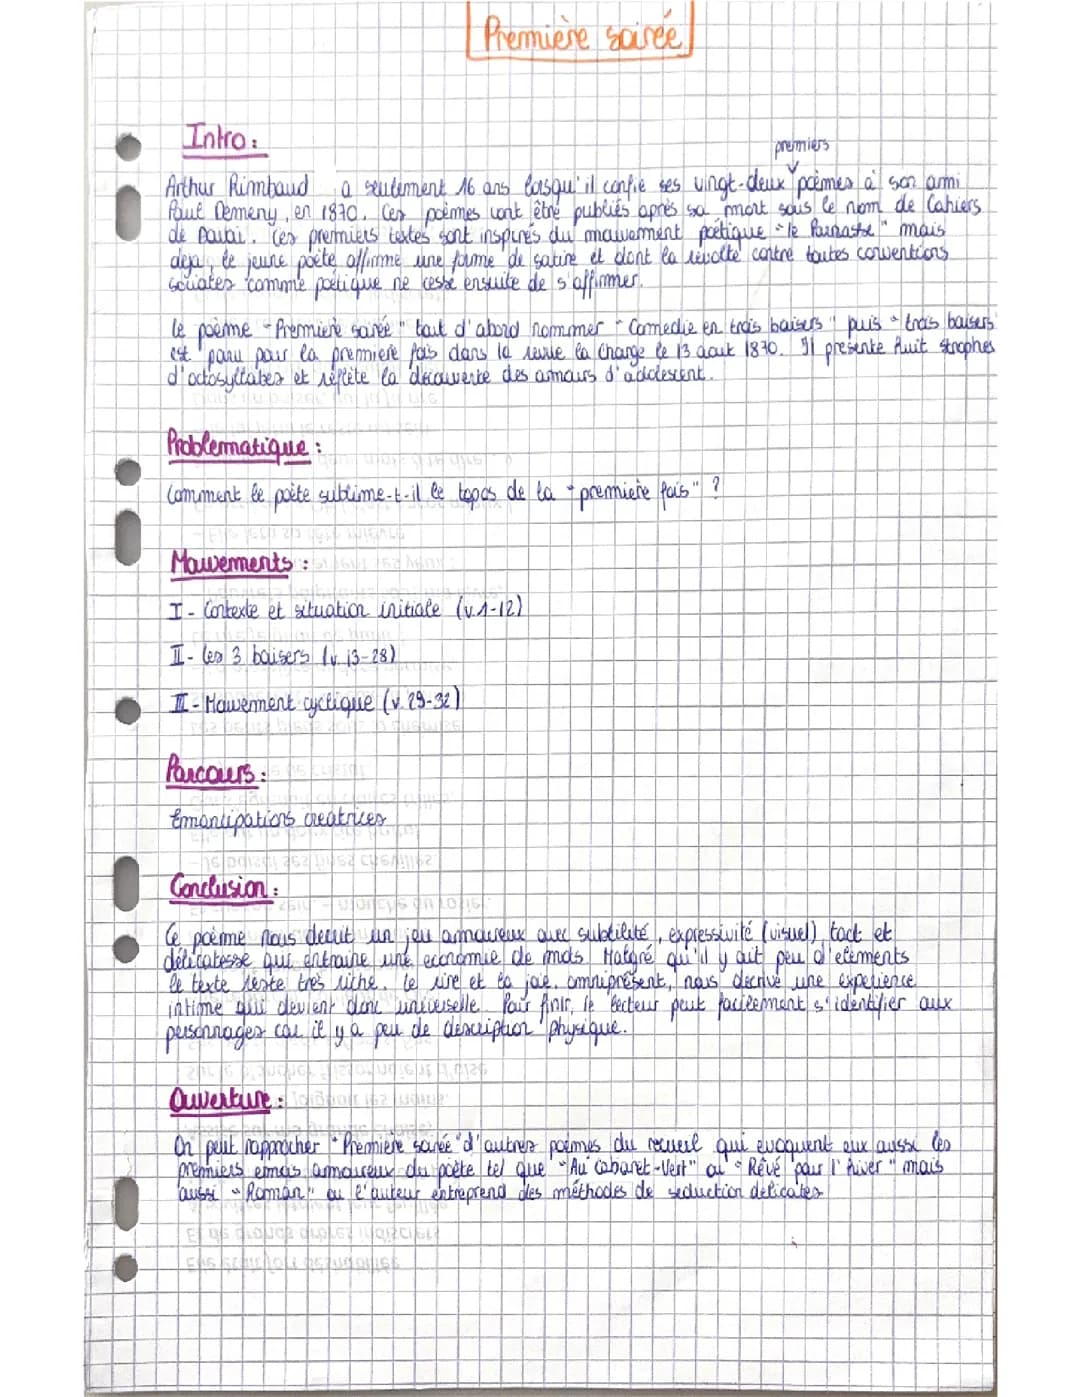 Première soirée
Intro :
premiers
Arthur Rimbaud a seulement 16 ans lorsqu'il confie ses vingt-deux poèmes à son ami
Paul Demeny, en 1870. Ces poèmes vont être publiés après sa mort sous le nom de Cahiers
de Douai. Ces premiers textes sont inspirés du mouvement poétique "le Parnasse" mais
deja, le jeune poète affirme une forme de satire et dont la révolte contre toutes conventions
sociales comme poétique ne cesse ensuite de s'affirmer.
Le poème "Première soirée" tout d'abord nommer "Comedie en trois baisers" puis "trois baisers"
est paru pour la premiere fois dans la revue la Charge le 13 aout 1870. Il présente huit strophes
d'octosyllabes et reflète la découverte des amours d'adolescent.
Problematique :
Comment le poète sublime-t-il le topos de la "premiere fois" ?
Mouvements :
I - Contexte et situation initiale (v.1-12)
II - Les 3 baisers (v. 13-28)
III - Mouvement cyclique (v. 29-32)
Parcours :
Emancipations creatrices
Conclusion :
Ce poème nous decrit un jeu amoureux avec subtilité, expressivité (visuel), tact et
délicatesse qui entraine une économie de mots. Malgré qu'il y ait peu d'elements
le texte reste très riche. Le rire et la joie, omniprésent, nous décrive une expérience
intime qui devient donc universelle. Pour finir, le lecteur peut facilement s'identifier aux
personnages car il y a peu de description physique.
Ouverture :
On peut rapprocher "Première soirée" d'autres poèmes du recueil qui evoquent eux aussi les
premiers emois amoureux du poète tel que "Au Cabaret-Vert" ou "Rêvé pour l'hiver" mais
aussi "Roman" ou l'auteur entreprend des méthodes de seduction délicates